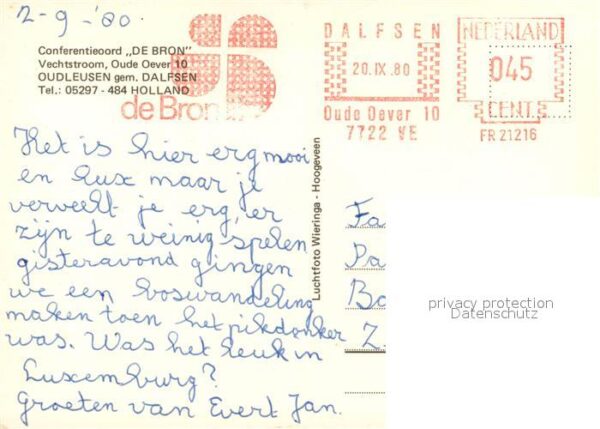 2-9-'80.
Conferentieoord „DE BRON”
Vechtstroom, Oude Oever 10
OUDLEUSEN gem. DALFSEN
Tel.: 05297 - 484 HOLLAND
de Bron
DALFSEN
20.IX.80
Oude Oever 10
7722 VE
NEDERLAND
045
CENT
FR 21216
Het is hier erg mooi
en lux maar je
verveelt je erg, er
zijn te weinig spelen
gisteravond gingen
we een boswandeling
maken toen het pikdonker
was. Was het leuk in
Luxemburg?
Groeten van Evert Jan.
Luchtfoto Wieringa - Hoogeveen
Fa
Pa
Bo
Z
privacy protection
Datenschutz